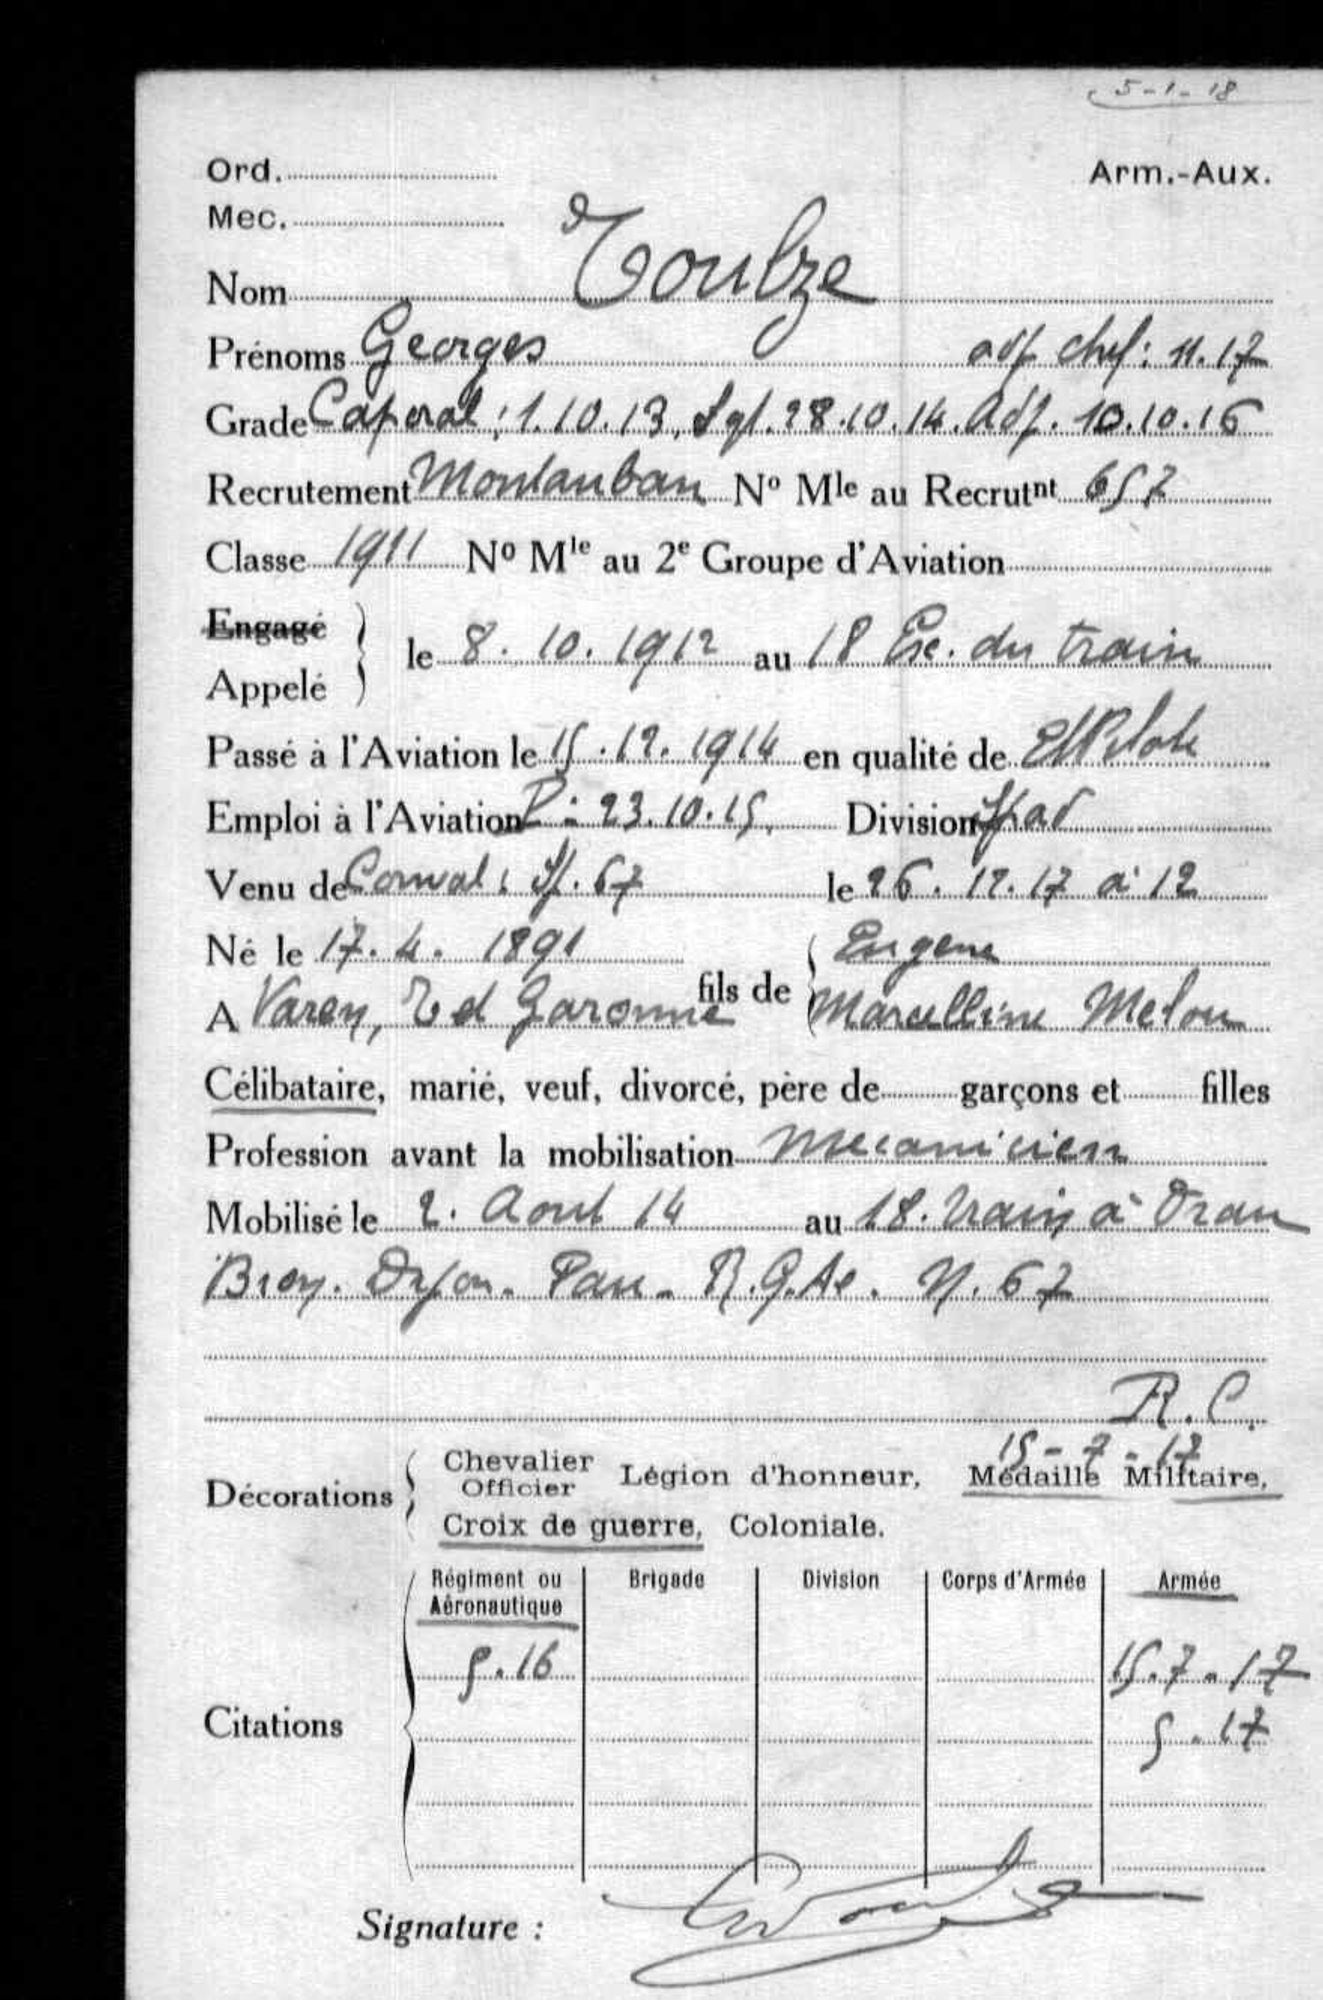 5-1-18
Ord.
Arm.-Aux.
Mec.
Nom Toulze
Prénoms Georges adj chef: 11.17
Grade Caporal: 1.10.13, Sgt. 28.10.14. Adj. 10.10.16
Recrutement Montauban Nº Mle au Recrutnt 657
Classe 1911 Nº Mle au 2e Groupe d'Aviation
Engagé
Appelé
le 8. 10. 1912 au 18 Esc. du train
Passé à l'Aviation le 15.12.1914 en qualité de El Pilote
Emploi à l'Aviation P: 23.10.15, Division Spad
Venu de Conval: Sp. 67 le 26. 12. 17 à 12
Né le 17. 4. 1891
fils de Eugene
A Varen, T et Garonne Marcelline Melou
Célibataire, marié, veuf, divorcé, père de garçons et filles
Profession avant la mobilisation mecanicien
Mobilisé le 2. Aout 14 au 18. train à Oran
Bron. Dijon. Pau. R.G.Ae. N. 67
R.C.
15-7-17
Décorations
Chevalier
Officier
Légion d'honneur, Médaille Militaire,
Croix de guerre, Coloniale.
Régiment ou Aéronautique Brigade Division Corps d'Armée Armée
5.16 15.7.17
Citations
5.17
Signature :